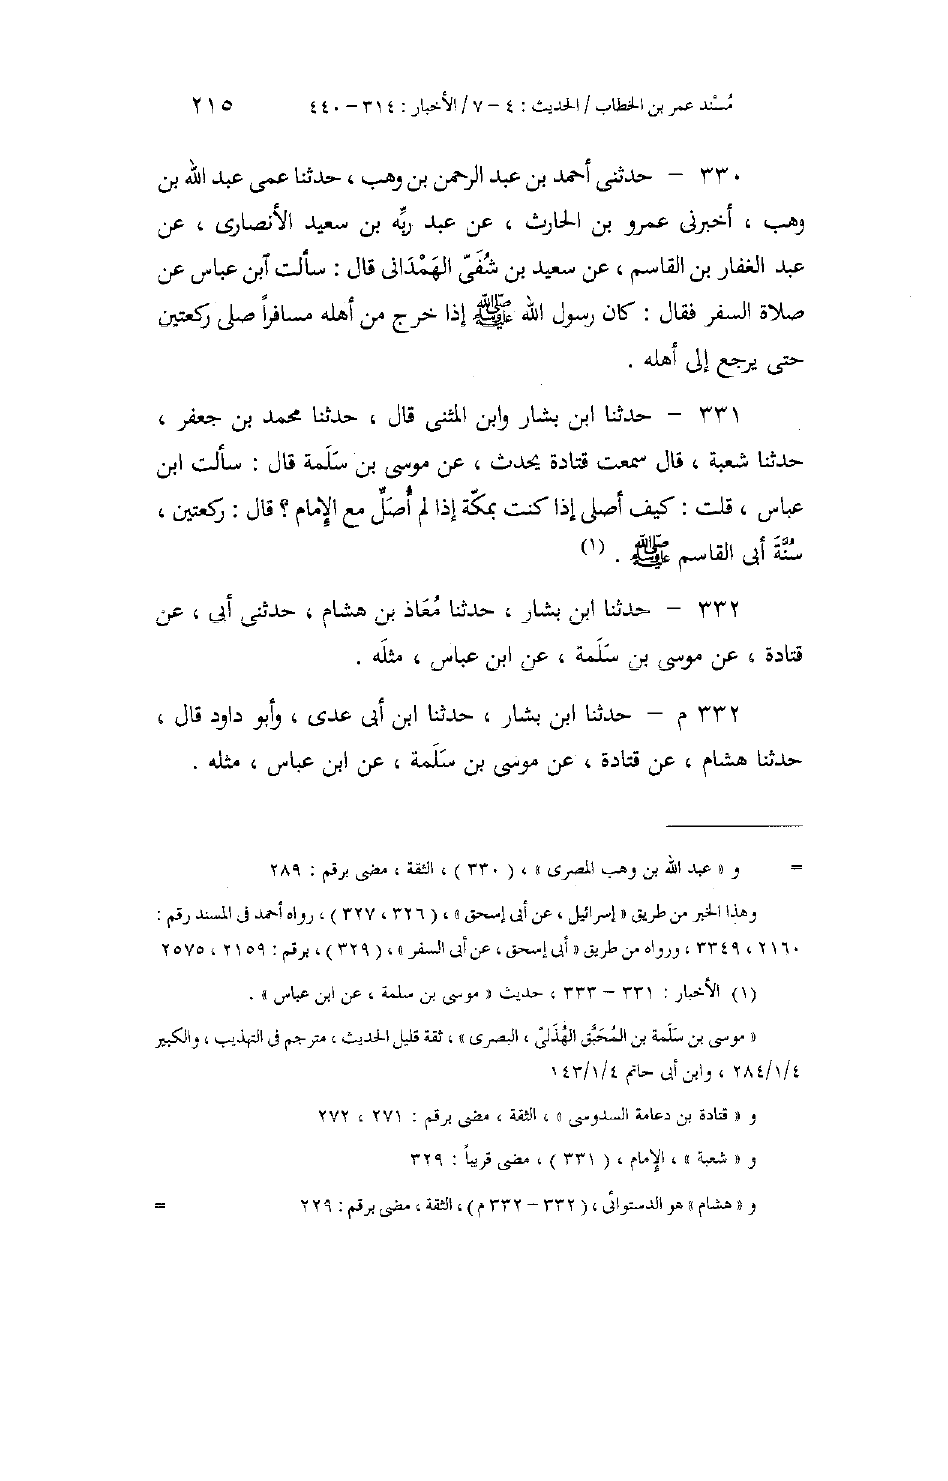 مُسْند عمر بن الخطاب / الحديث : ٤ – ٧ / الأخبار : ٣١٤ – ٤٤٠ ٢١٥
٣٣٠ – حدثنى أحمد بن عبد الرحمن بن وهب ، حدثنا عمى عبد الله بن
وهب ، أخبرنى عمرو بن الحارث ، عن عبد ربِّه بن سعيد الأنصارى ، عن
عبد الغفار بن القاسم ، عن سعيد بن شُفَىّ الهَمْدَانى قال : سألت آبن عباس عن
صلاة السفر فقال : كان رسول الله ﷺ إذا خرج من أهله مسافراً صلى ركعتين
حتى يرجع إلى أهله .
٣٣١ – حدثنا ابن بشار وابن المثنى قال ، حدثنا محمد بن جعفر ،
حدثنا شعبة ، قال سمعت قتادة يحدث ، عن موسى بن سَلَمة قال : سألت ابن
عباس ، قلت : كيف أصلى إذا كنت بمكّة إذا لم أُصَلِّ مع الإمام ؟ قال : ركعتين ،
سُنَّةَ أبى القاسم ﷺ . (١)
٣٣٢ – حدثنا ابن بشار ، حدثنا مُعَاذ بن هشام ، حدثنى أبى ، عن
قتادة ، عن موسى بن سَلَمة ، عن ابن عباس ، مثلَه .
٣٣٢ م – حدثنا ابن بشار ، حدثنا ابن أبى عدى ، وأبو داود قال ،
حدثنا هشام ، عن قتادة ، عن موسى بن سَلَمة ، عن ابن عباس ، مثله .
= و « عبد الله بن وهب المصرى » ، ( ٣٣٠ ) ، الثقة ، مضى برقم : ٢٨٩
وهذا الخبر من طريق « إسرائيل ، عن أبى إسحق » ، ( ٣٢٦ ، ٣٢٧ ) ، رواه أحمد فى المسند رقم :
٢١٦٠ ، ٣٣٤٩ ، ورواه من طريق « أبى إسحق ، عن أبى السفر » ، ( ٣٢٩ ) ، برقم : ٢١٥٩ ، ٢٥٧٥
(١) الأخبار : ٣٣١ – ٣٣٣ ، حديث « موسى بن سلمة ، عن ابن عباس » .
« موسى بن سَلَمة بن المُحَبَّق الهُذَلىّ ، البصرى » ، ثقة قليل الحديث ، مترجم فى التهذيب ، والكبير
٢٨٤/١/٤ ، وابن أبى حاتم ١٤٣/١/٤
و « قتادة بن دعامة السدوسى » ، الثقة ، مضى برقم : ٢٧١ ، ٢٧٢
و « شعبة » ، الإمام ، ( ٣٣١ ) ، مضى قريباً : ٣٢٩
و « هشام » هو الدستوائى ، ( ٣٣٢ – ٣٣٢ م ) ، الثقة ، مضى برقم : ٢٢٩ =